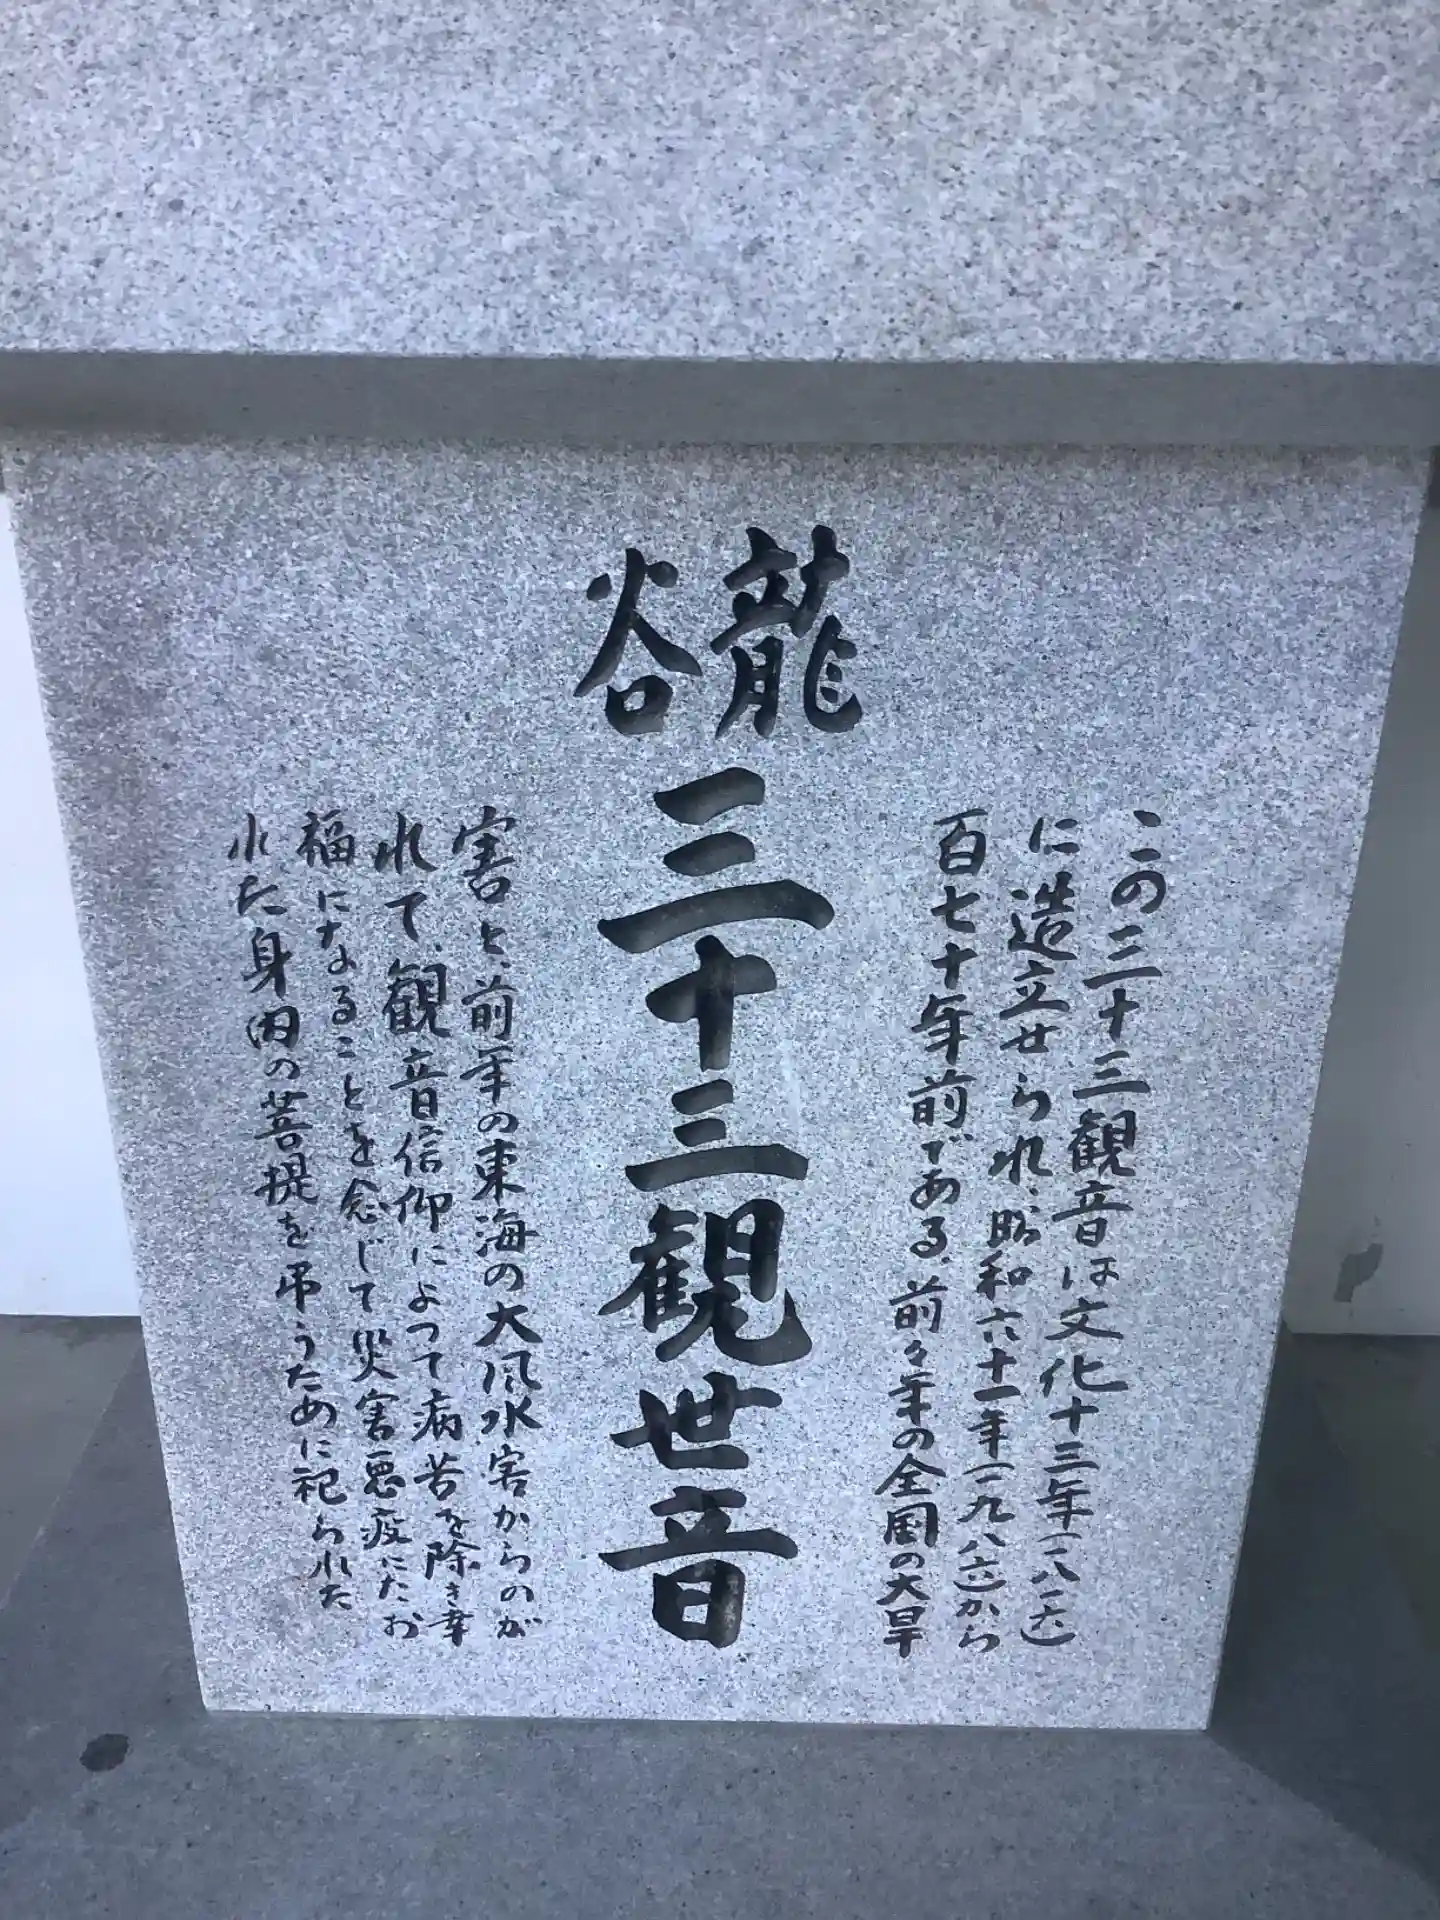 この三十三観音は文化十三年(一八一六)
に造立せられ、昭和六十一年(一九八六)から
百七十年前である、前々年の全国の大旱
龍谷
三十三観世音
害と、前年の東海の大風水害からのが
れて、観音信仰によって病苦を除き幸
福になることを念じて災害悪疫にたお
れた身内の菩提を弔うために祀られた